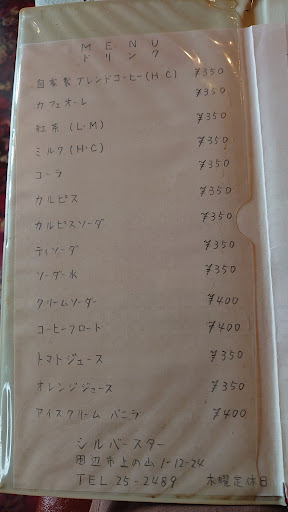 MENU
ドリンク
自家製ブレンドコーヒー(H・C) ¥350
カフェオーレ ¥350
紅茶(L・M) ¥350
ミルク(H・C) ¥350
コーラ ¥350
カルピス ¥350
カルピスソーダ ¥350
ティソーダ ¥350
ソーダー水 ¥350
クリームソーダー ¥400
コーヒーフロート ¥400
トマトジュース ¥350
オレンジジュース ¥350
アイスクリーム バニラ ¥400
シルバースター
田辺市上の山1-12-24
TEL 25-2489 木曜定休日